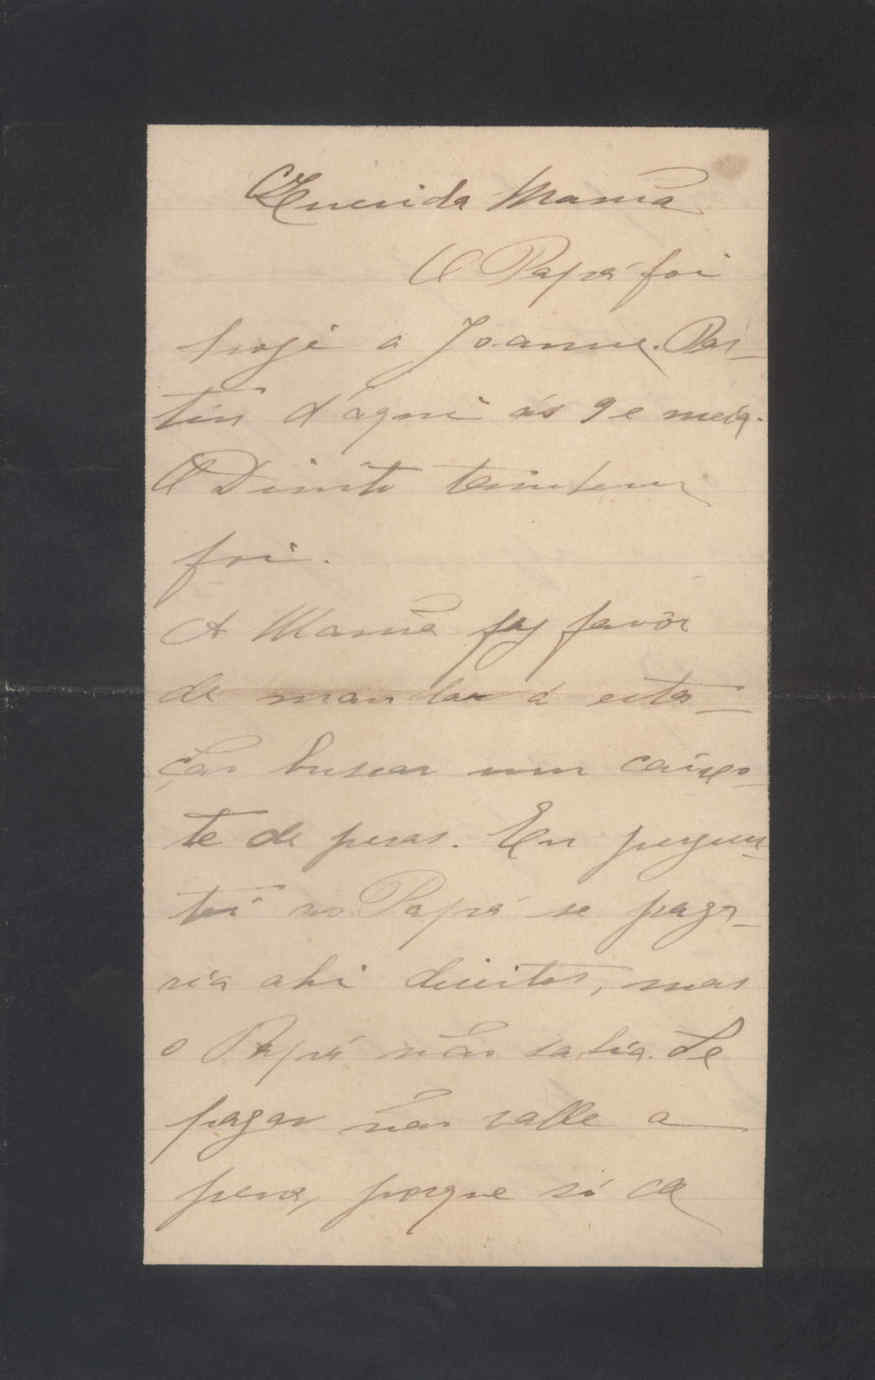 Querida Mamã
O Papá foi
hoje a Joanne. Par-
tiu d'aqui ás 9 e meia.
O tambem
foi.
A Mamã faz favôr
de mandar á esta-
ção buscar um caixo-
te de peras. Eu pergun-
tei ao Papá se paga-
ria ahi direitos, mas
o Papá não sabia. Se
pagar não valle a
pena, porque só ca